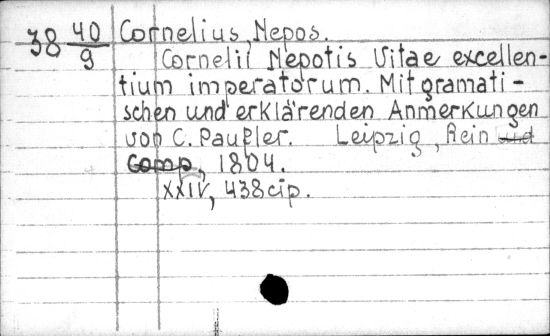 38 40/9 Cornelius Nepos.
Cornelii Nepotis Vitae excellen-
tium imperatorum. Mit gramati-
schen und erklärenden Anmerkungen
von C. Paufler. Leipzig, Rein und
Comp, 1804.
XXIV, 438 cip.